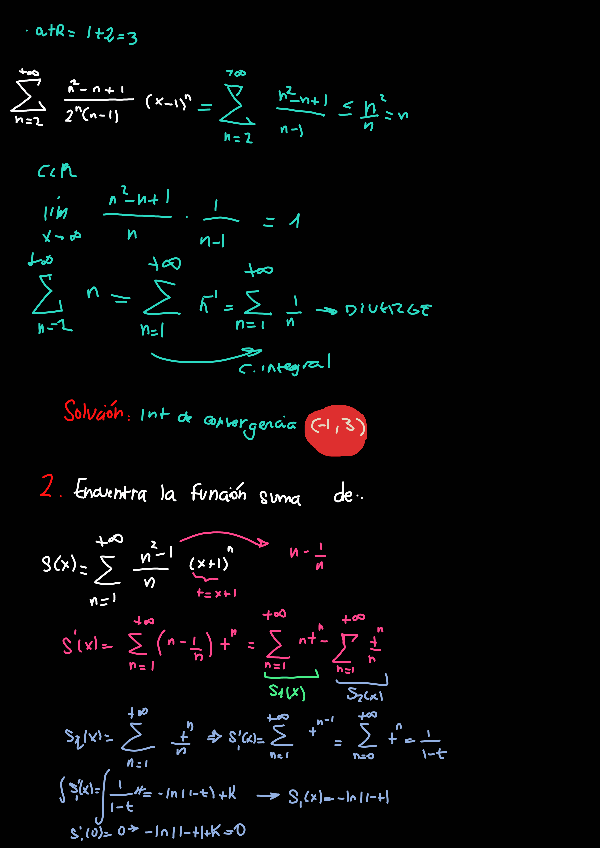 · a+R = 1+2=3
+∞ ∑ n=2 n²-n+1 / 2ⁿ(n-1) (x-1)ⁿ = +∞ ∑ n=2 n²-n+1 / n-1 ≤ n²/n = n
lim x→∞ n²-n+1 / n · 1 / n-1 = 1
+∞ ∑ n=2 n = +∞ ∑ n=1 n⁻¹ = +∞ ∑ n=1 1/n → DIVERGE
C. integral
Solución: Int de convergencia (-1,3)
2. Encuentra la función suma de..
S(x) = +∞ ∑ n=1 n²-1 / n (x+1)ⁿ → n - 1/n
t=x+1
S'(x) = +∞ ∑ n=1 (n - 1/n) tⁿ = +∞ ∑ n=1 ntⁿ - +∞ ∑ n=1 tⁿ/n
S1(x) S2(x)
S2(x) = +∞ ∑ n=1 tⁿ/n ⇒ S'1(x) = +∞ ∑ n=1 tⁿ⁻¹ = +∞ ∑ n=0 tⁿ = 1/1-t
∫S'1(x) = ∫ 1/1-t dt = -ln|1-t|+K → S1(x) = -ln|1-t|
S'1(0) = 0 → -ln|1-t|+K=0